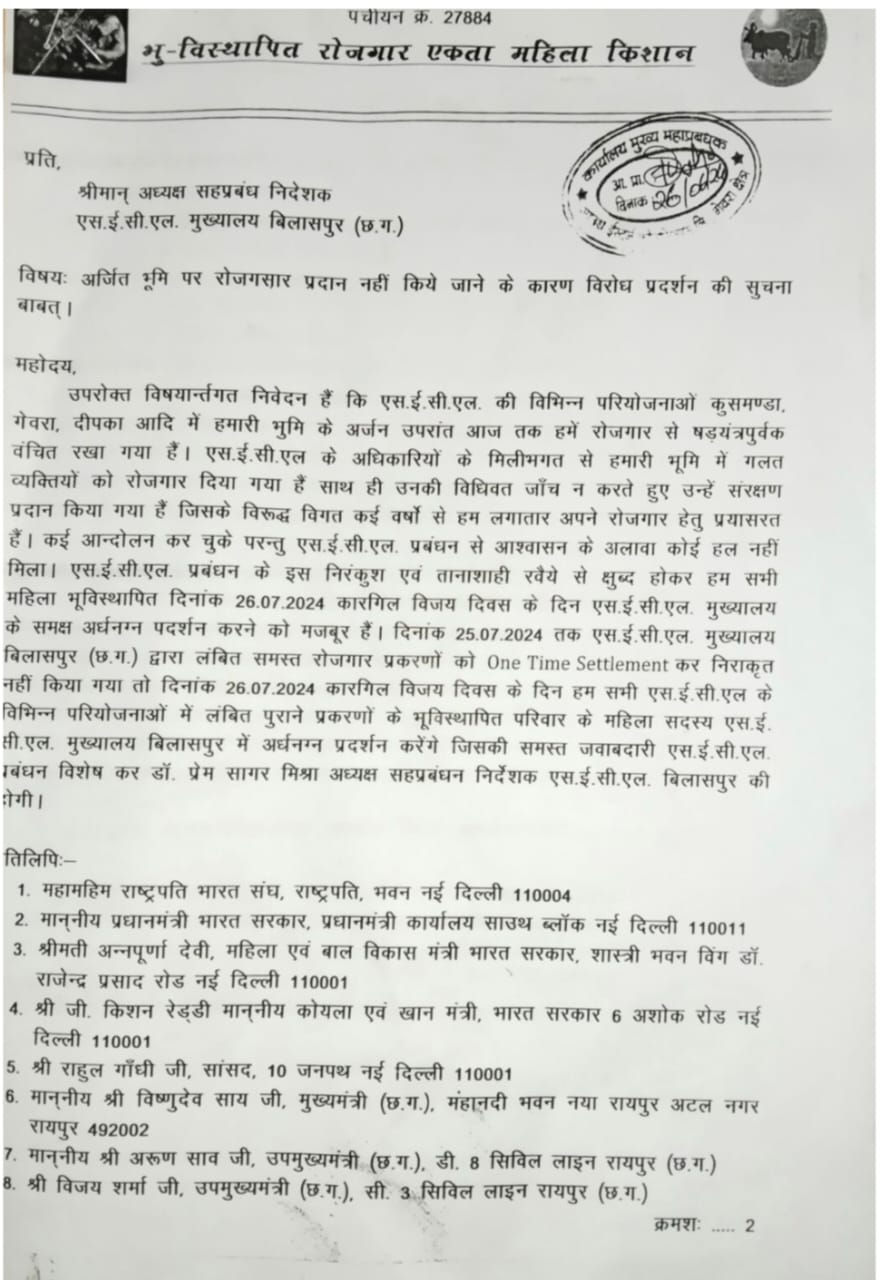 पंचीयन क्र. 27884
भु-विस्थापित रोजगार एकता महिला किशान
कार्यालय मुख्य महाप्रबंधक
आ. प्रा.
दिनांक 26/06/24
गेवरा क्षेत्र
प्रति,
श्रीमान् अध्यक्ष सहप्रबंध निदेशक
एस.ई.सी.एल. मुख्यालय बिलासपुर (छ.ग.)
विषयः अर्जित भूमि पर रोजगसार प्रदान नहीं किये जाने के कारण विरोध प्रदर्शन की सुचना
बाबत्।
महोदय,
उपरोक्त विषयार्न्तगत निवेदन हैं कि एस.ई.सी.एल. की विभिन्न परियोजनाओं कुसमण्डा,
गेवरा, दीपका आदि में हमारी भुमि के अर्जन उपरांत आज तक हमें रोजगार से षड़यंत्रपुर्वक
वंचित रखा गया हैं। एस.ई.सी.एल के अधिकारियों के मिलीभगत से हमारी भूमि में गलत
व्यक्तियों को रोजगार दिया गया हैं साथ ही उनकी विधिवत जाँच न करते हुए उन्हें संरक्षण
प्रदान किया गया हैं जिसके विरूद्ध विगत कई वर्षो से हम लगातार अपने रोजगार हेतु प्रयासरत
हैं। कई आन्दोलन कर चुके परन्तु एस.ई.सी.एल. प्रबंधन से आश्वासन के अलावा कोई हल नहीं
मिला। एस.ई.सी.एल. प्रबंधन के इस निरंकुश एवं तानाशाही रवैये से क्षुब्द होकर हम सभी
महिला भूविस्थापित दिनांक 26.07.2024 कारगिल विजय दिवस के दिन एस.ई.सी.एल. मुख्यालय
के समक्ष अर्धनग्न पदर्शन करने को मजबूर हैं। दिनांक 25.07.2024 तक एस.ई.सी.एल. मुख्यालय
बिलासपुर (छ.ग.) द्वारा लंबित समस्त रोजगार प्रकरणों को One Time Settlement कर निराकृत
नहीं किया गया तो दिनांक 26.07.2024 कारगिल विजय दिवस के दिन हम सभी एस.ई.सी.एल के
विभिन्न परियोजनाओं में लंबित पुराने प्रकरणों के भूविस्थापित परिवार के महिला सदस्य एस.ई.
सी.एल. मुख्यालय बिलासपुर में अर्धनग्न प्रदर्शन करेंगे जिसकी समस्त जवाबदारी एस.ई.सी.एल.
प्रबंधन विशेष कर डॉ. प्रेम सागर मिश्रा अध्यक्ष सहप्रबंधन निर्देशक एस.ई.सी.एल. बिलासपुर की
होगी।
तिलिपिः–
1. महामहिम राष्ट्रपति भारत संघ, राष्ट्रपति, भवन नई दिल्ली 110004
2. मान्नीय प्रधानमंत्री भारत सरकार, प्रधानमंत्री कार्यालय साउथ ब्लॉक नई दिल्ली 110011
3. श्रीमती अन्नपूर्णा देवी, महिला एवं बाल विकास मंत्री भारत सरकार, शास्त्री भवन विंग डॉ.
राजेन्द्र प्रसाद रोड नई दिल्ली 110001
4. श्री जी. किशन रेड्डी मान्नीय कोयला एवं खान मंत्री, भारत सरकार 6 अशोक रोड नई
दिल्ली 110001
5. श्री राहुल गाँधी जी, सांसद, 10 जनपथ नई दिल्ली 110001
6. मान्नीय श्री विष्णुदेव साय जी, मुख्यमंत्री (छ.ग.), मंहानदी भवन नया रायपुर अटल नगर
रायपुर 492002
7. मान्नीय श्री अरूण साव जी, उपमुख्यमंत्री (छ.ग.), डी. 8 सिविल लाइन रायपुर (छ.ग.)
8. श्री विजय शर्मा जी, उपमुख्यमंत्री (छ.ग.), सी. 3 सिविल लाइन रायपुर (छ.ग.)
क्रमशः ..... 2